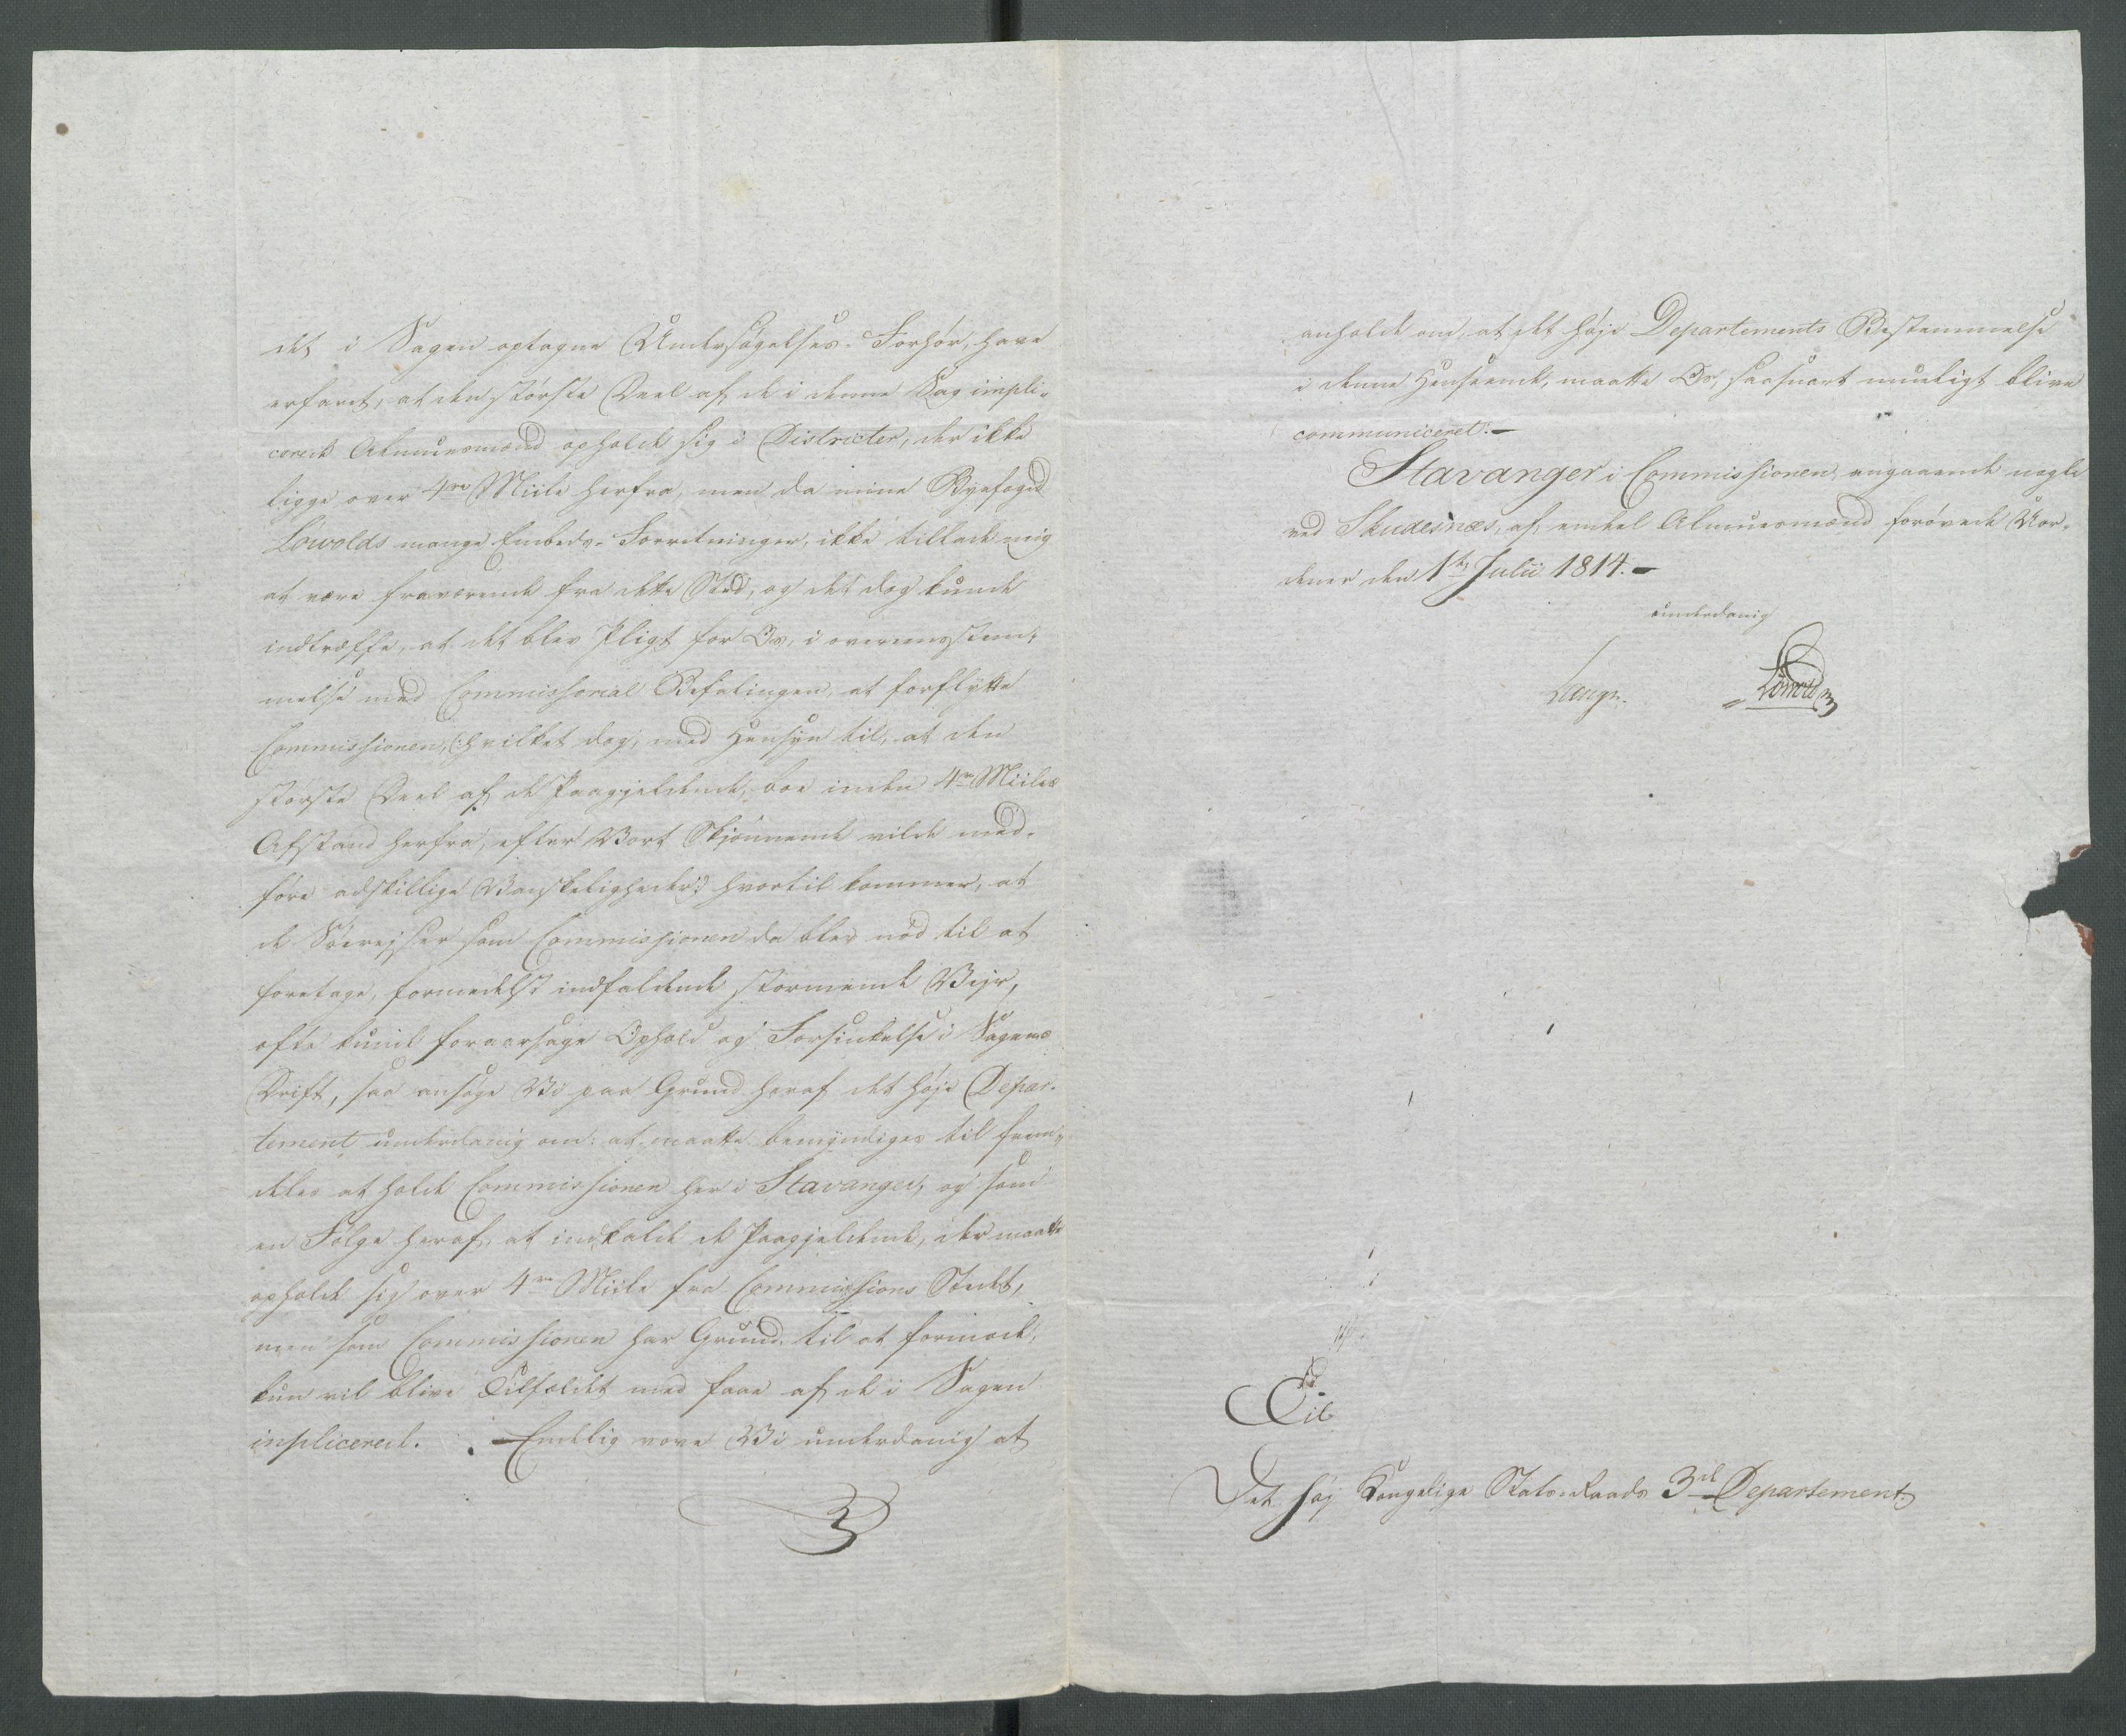 det i Sagen optagne Undersøgelses-Forhør, have
erfaret, at den største Deel af de i denne Sag impli-
cerede Almuesmænd opholde sig i Districter, der ikke
ligge over 4re Miile herfra, men da mine Byefoged
Löwolds mange Embeds-Forretninger, ikke tillade mig
at være fraværende fra dette Stæd, og det dog kunde
indtræffe, at det blev Pligt for Os, i overeensstem-
melse med Commissorial Befalingen, at forflytte
Commissionen, (:hvilket dog, med Hensyn til, at den
største Deel af de Paagjeldende, boe inden 4re Miiles
Afstand herfra, efter Vort Skjønnende vilde med-
føre adskillige Vanskeligheder:) hvortil kommer, at
de Søerejser som Commissionen da blev nød til at
foretage, formedelst indfaldende stormende Vejr,
ofte kunde foraarsage Ophold og Forsinkelse i Sagens
Drift, saa ansøge Vi paa Grund heraf det høje Depar-
tement underdanig om: at maatte bemyndiges til frem-
deles at holde Commissionen her i Stavanger, og som
en Følge heraf, at indkalde de Paagjeldende, der maatte
opholde sig over 4re Miile fra Commissions Stædet,
men som Commissionen har Grund til at formode,
kun vil blive Tilfældet med faae af de i Sagen
inplicerede. Endelig vove Vi underdanig at
anholde om, at det høje Departements Bestemmelse
i denne Henseende, maatte Os, saasnart mueligt blive
communiceret.
Stavanger i Commissionen, angaaende nogle
ved Skudesnæs, af endeel Almuesmænd forøvede Uor-
dener den 1te Julii 1814.
underdanig
Lange. Löwold
Til
Det høj Kongelige Stats-Raads 3de Departement